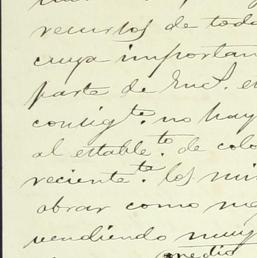 recursos de toda
cuya importan
parte de Encl. e
consigte. no hay
al establete. de colo
recientete. los mi
obrar como me
vendiendo muy
medio